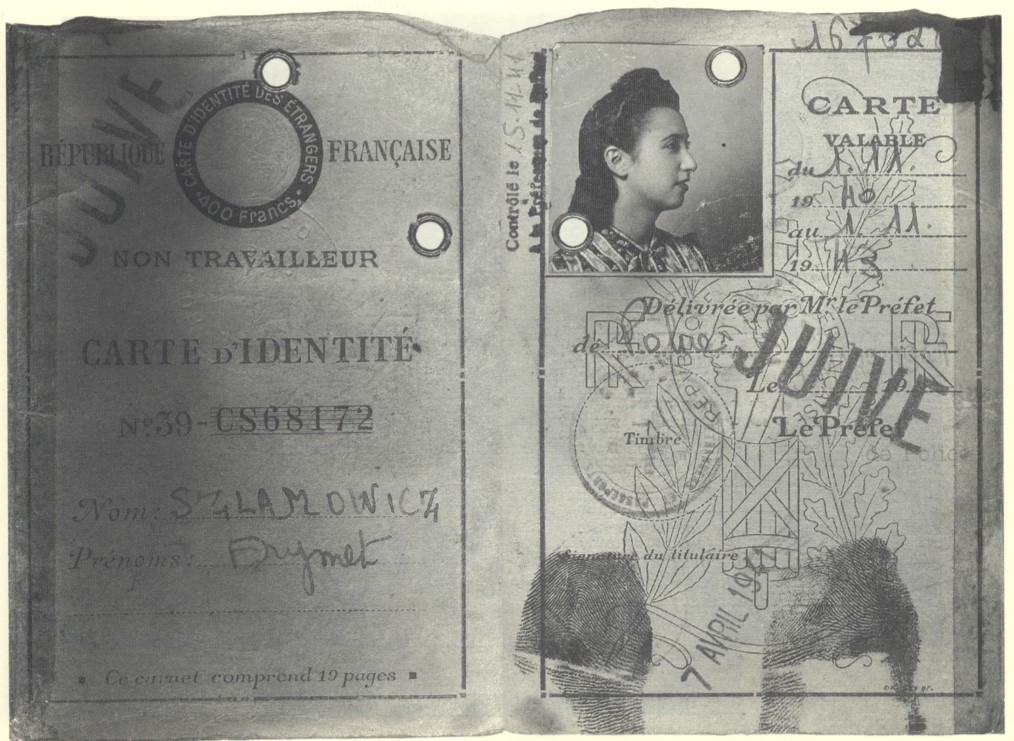 JUIVE
CARTE D'IDENTITÉ DES ÉTRANGERS
400 Francs
RÉPUBLIQUE FRANÇAISE
NON TRAVAILLEUR
CARTE D'IDENTITÉ
Nº 39-CS68172
Nom: SZLAMOWICZ
Prénoms: Drymet
Ce carnet comprend 19 pages
Contrôlé le 15-11-41
à la Préfecture de
CARTE
VALABLE
du 1.11.
19 40
au 1.11.
19 43
Délivrée par Mr. le Préfet
de Police
JUIVE
Le 19
Le Préfet
de Police
Timbre
Signature du titulaire
7 AVRIL